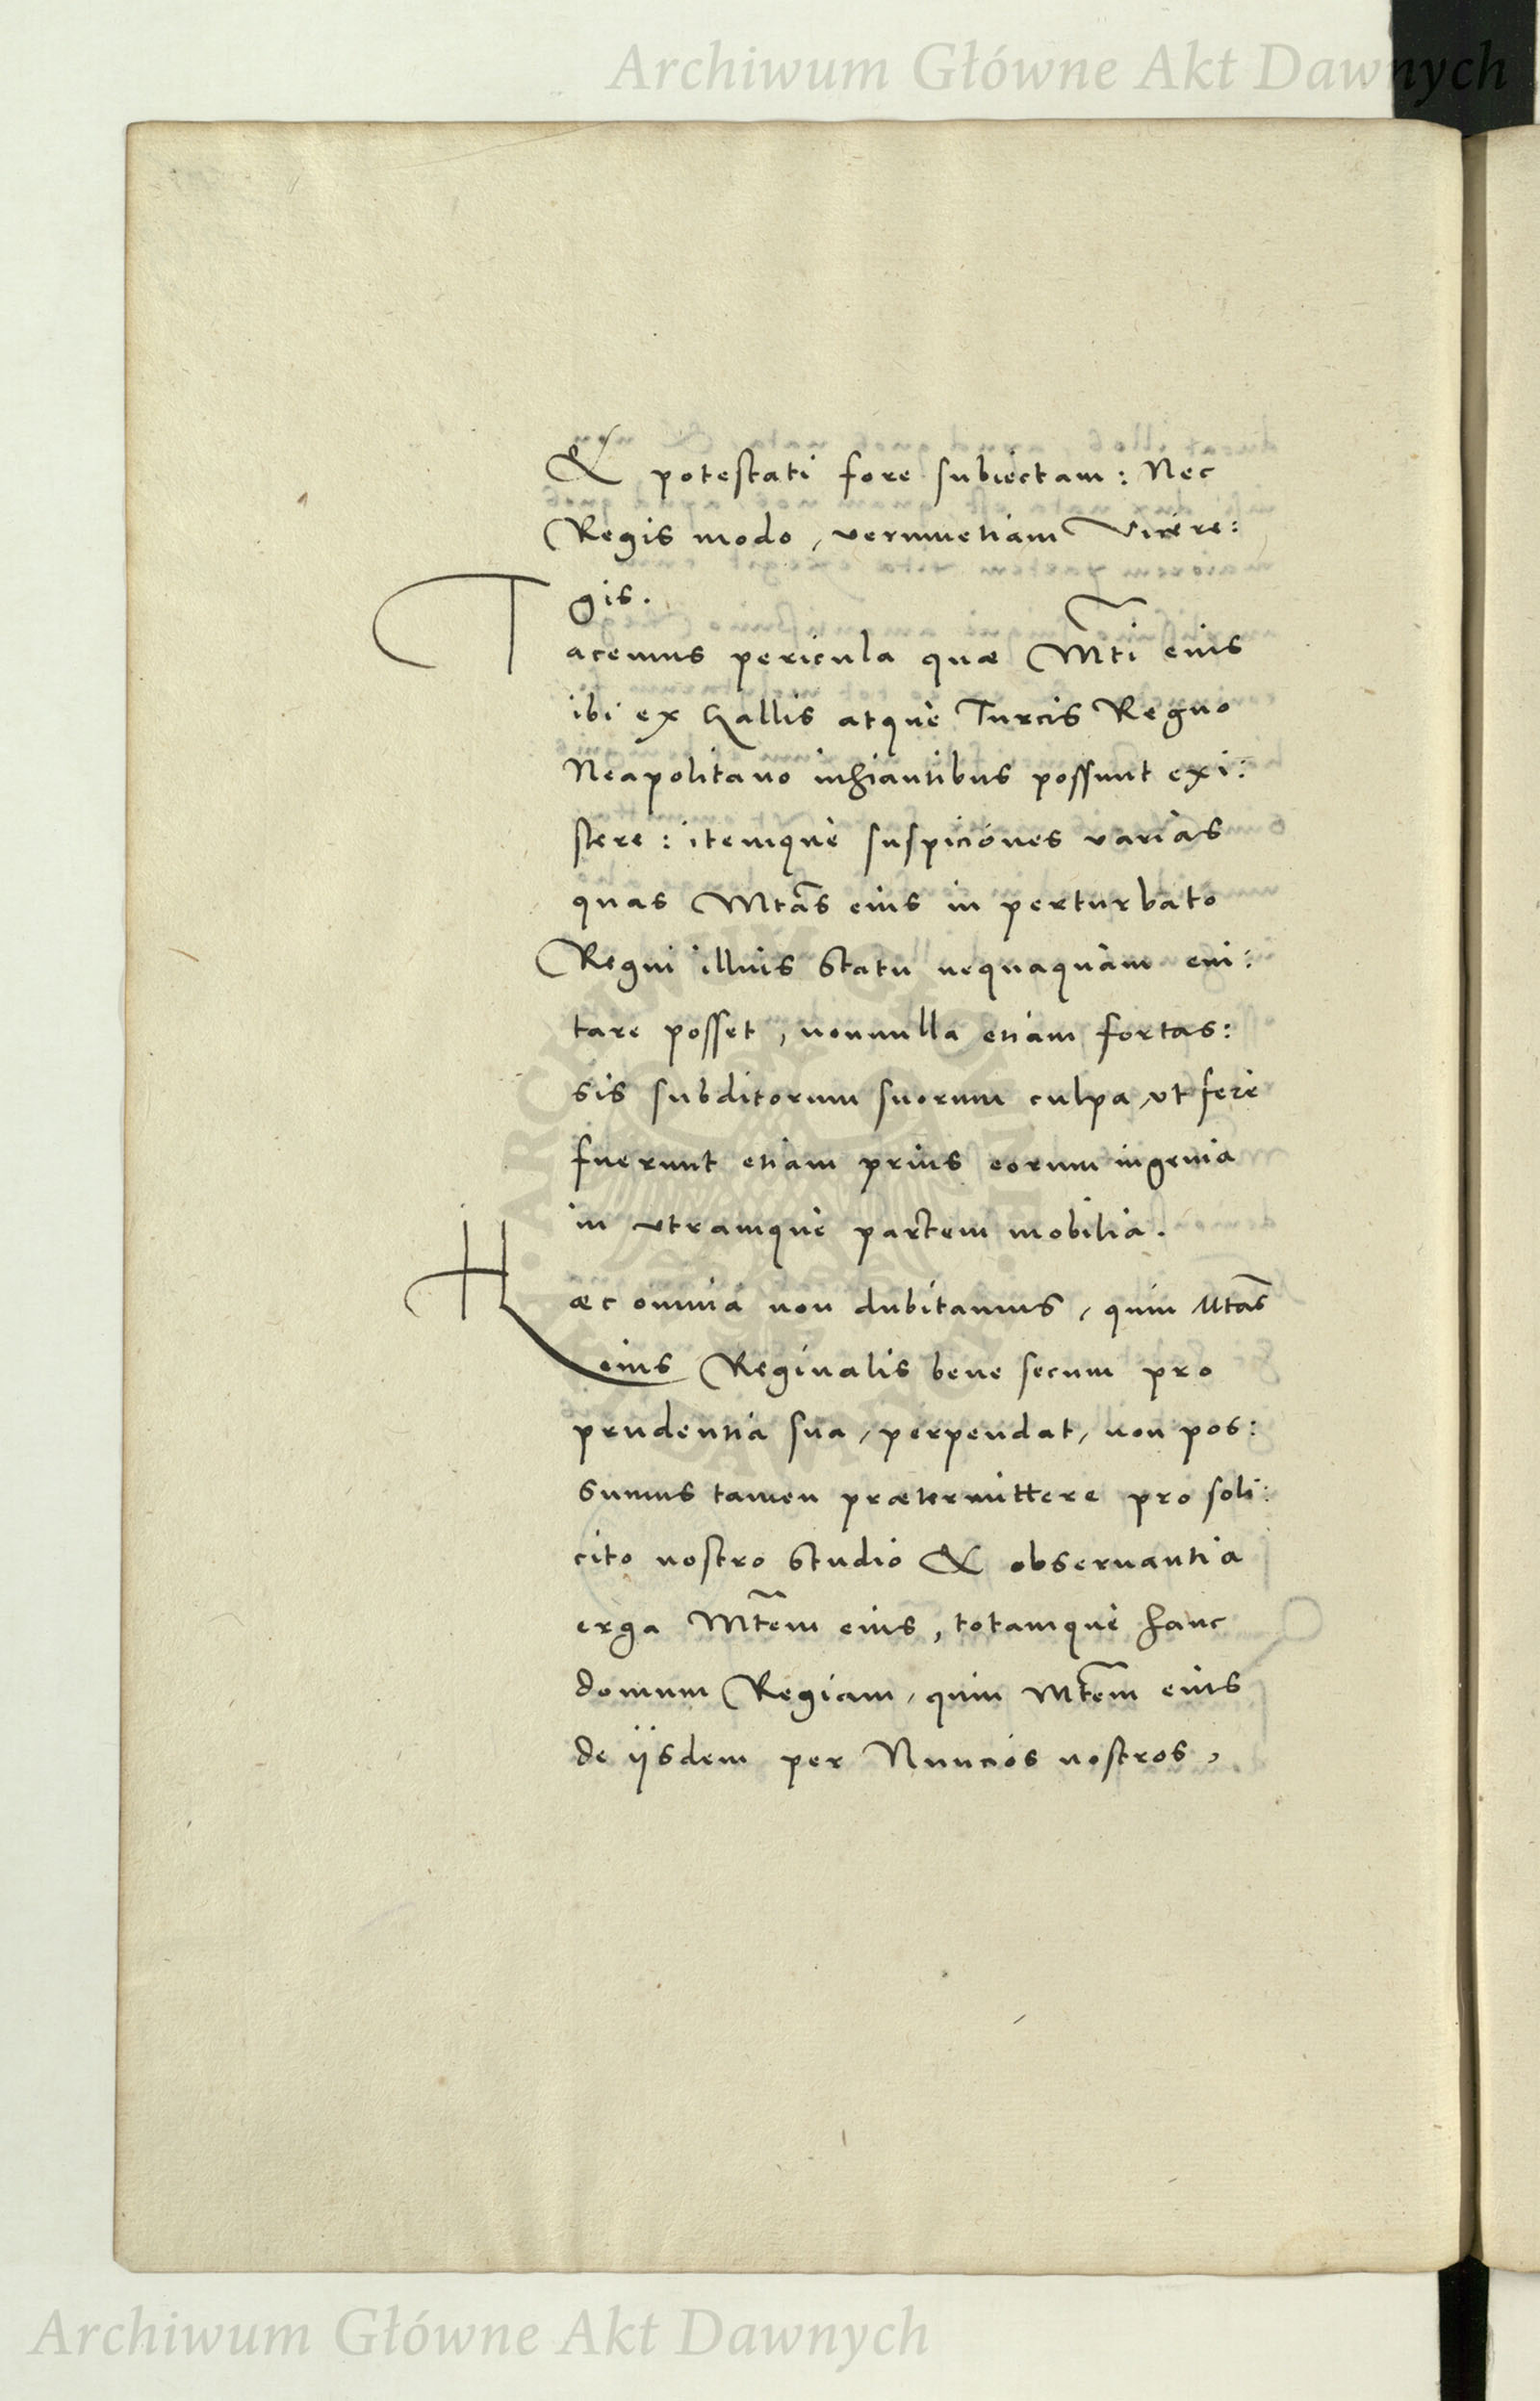 Archiwum Główne Akt Dawnych
& potestati fore subiectam: Nec
Regis modo, verumetiam Vicere:
gis.
Tacemus pericula quæ Mti eius
ibi ex Gallis atque Turcis Regno
Neapolitano inhiantibus possunt exi:
stere: itemque suspiciones varias
quas Mtas eius in perturbato
Regni illius statu nequaquam eui:
tare posset, nonnulla etiam fortas:
sis subditorum suorum culpa, vt fere
fuerunt etiam prius eorum ingenia
in vtramque partem mobilia.
Hæc omnia non dubitamus, quin Mtas
eius Reginalis bene secum pro
prudentia sua, perpendat, non pos:
sumus tamen prætermittere pro soli:
cito nostro studio & obseruantia
erga Mtem eius, totamque hanc
domum Regiam, quin Mtem eius
de iisdem per Nuncios nostros,
Archiwum Główne Akt Dawnych